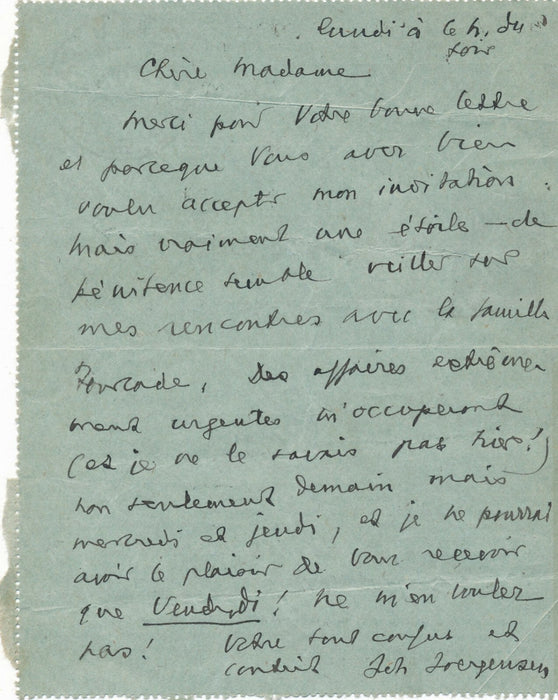 lundi à 6 h. du
soir
Chère Madame
Merci pour Votre bonne lettre
et parceque Vous avez bien
voulu accepter mon invitation.
Mais vraiment une étoile – de
pénitence semble veiller sur
mes rencontres avec la famille
Fourcade. Des affaires extrême
ment urgentes m'occuperont
(et je ne le savais pas hier!)
non seulement demain mais
mercredi et jeudi, et je ne pourrai
avoir le plaisir de Vous recevoir
que Vendredi! Ne m'en voulez
pas! Votre tout confus et
contrit Joh Joergensen